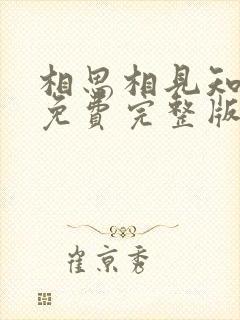 相思相見知
免費完整版
崔京秀